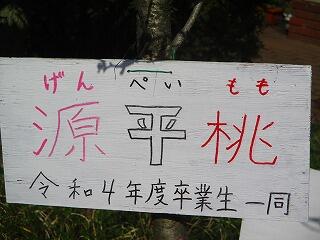 げん ぺい もも
源平桃
令和4年度卒業生一同